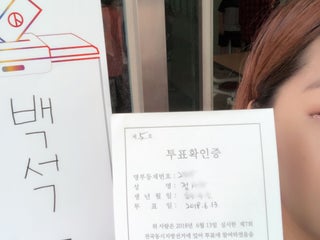 백석
제 5 호
투표확인증
명부등재번호 :
성 명 : 정
생 년 월 일 :
투 표 일 : 2018. 6. 13
위 사람은 2018년 6월 13일 실시한 제7회
전국동시지방선거에 있어 투표에 참여하였음을